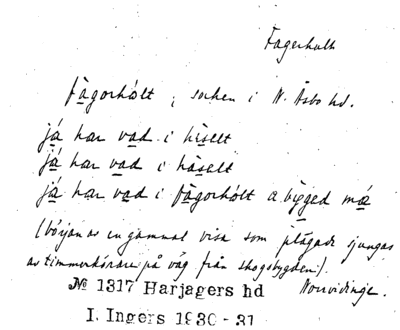 Fagerhult
fàgorhólt, socken i N. Åsbo hd.
já har vad i hìselt
já har vad i håselt
já har vad i fàgorhólt a bìgged má
(början av en gammal visa som plägade sjungas
av timmerkörare på väg från skogsbygden).
№ 1317 Harjagers hd Norrvidinge.
I. Ingers 1930-31